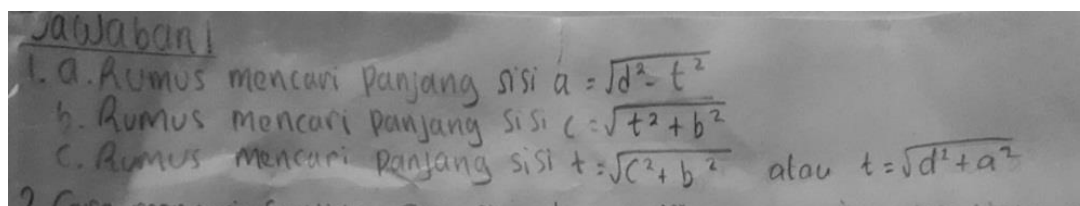 Jawaban!
1. a. Rumus mencari Panjang sisi a = √d² - t²
b. Rumus mencari panjang sisi c = √t² + b²
c. Rumus mencari Panjang sisi t = √c² + b² atau t = √d² + a²